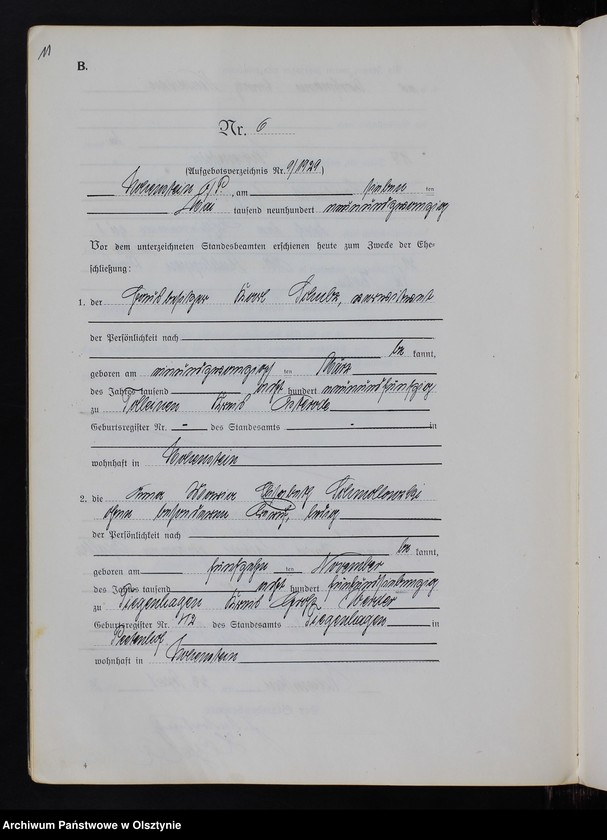 11
B.
Nr. 6
(Aufgebotsverzeichnis Nr. 9/1929)
Hohenstein O/P., am sieben ten
Mai tausend neunhundert neunundzwanzig
Vor dem unterzeichneten Standesbeamten erschienen heute zum Zwecke der Ehe-
schließung:
1. der Hausbesitzer Karl Schulz, verwitwet
der Persönlichkeit nach
be kannt,
geboren am neunundzwanzigsten März
des Jahres tausend acht hundert neunundfünfzig
zu Kreis Osterode
Geburtsregister Nr. - des Standesamts - in
wohnhaft in Hohenstein
2. die Anna Maria Elisabeth
ohne besonderen Beruf, ledig
der Persönlichkeit nach
be kannt,
geboren am fünfzehn ten November
des Jahres tausend acht hundert fünfundsiebenzig
zu Ziegenhagen Kreis
Geburtsregister Nr. 42 des Standesamts Ziegenhagen in
wohnhaft in Hohenstein
Archiwum Państwowe w Olsztynie